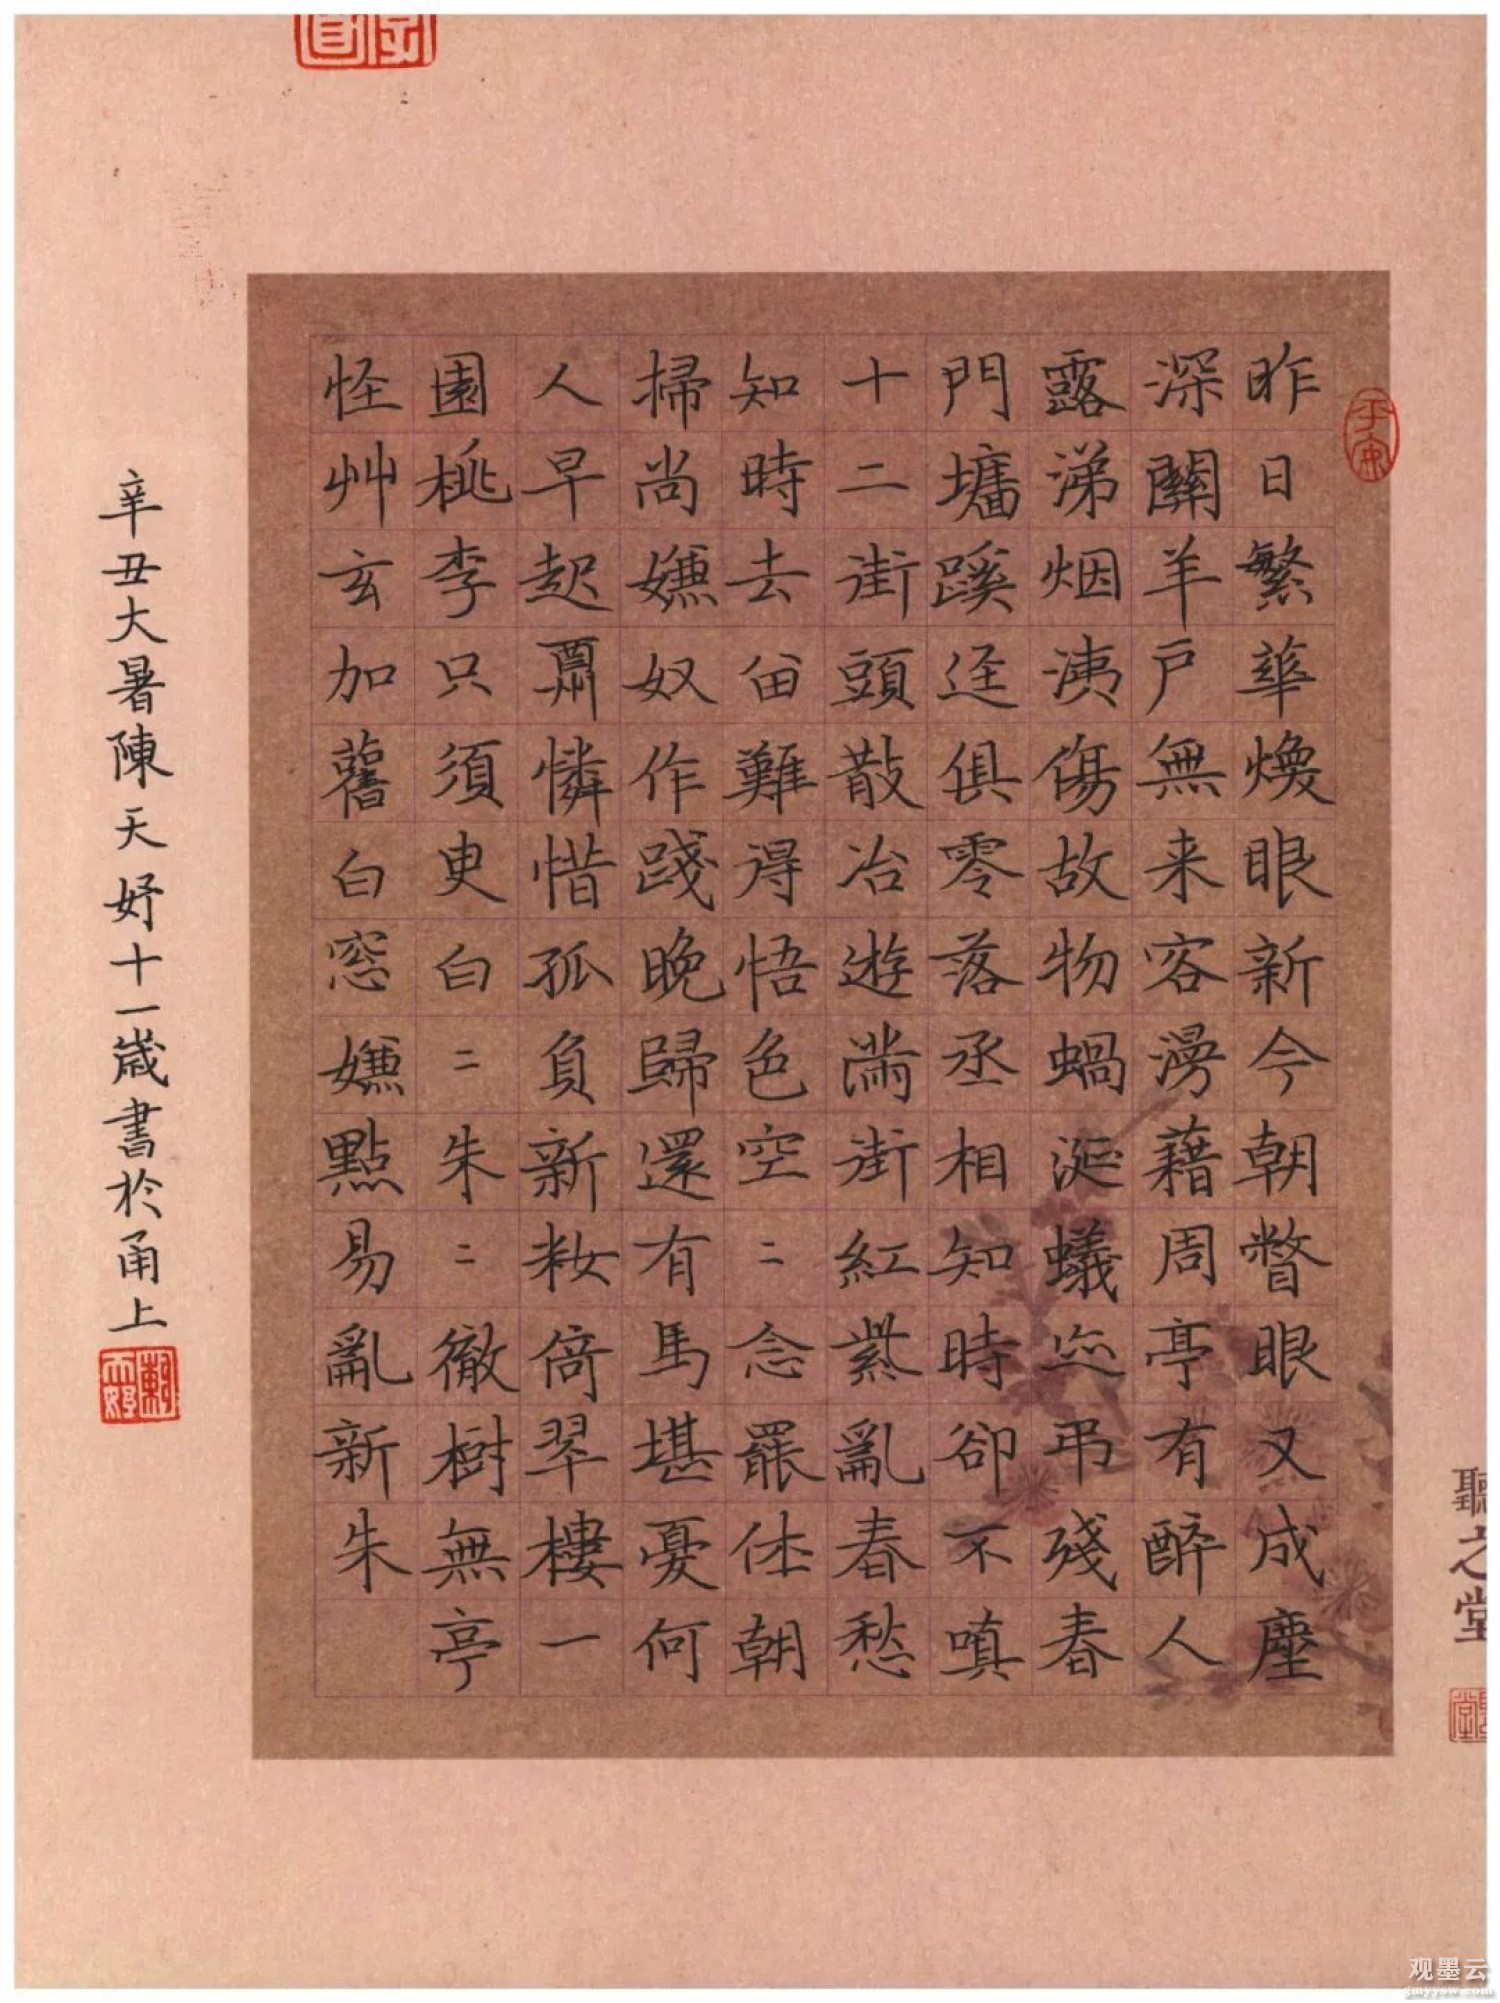 昨日繁華煥眼新今朝瞥眼又成塵
深關羊户無来客漫藉周亭有醉人
露涕烟洟傷故物蝸涎蟻迹弔殘春
門墻蹊逕俱零落丞相知時卻不嗔
十二街頭散冶遊滿街紅紫亂春愁
知時去畄難得悟色空二念罷休朝
掃尚嫌奴作踐晚歸還有馬堪憂何
人早起酬憐惜孤負新妝倚翠樓一
園桃李只須臾白二朱二徹樹無亭
怪艸玄加舊白窓嫌點易亂新朱
辛丑大暑陳天妤十一歲書於甬上
平安
聽之堂
观墨云
jmyysw.com